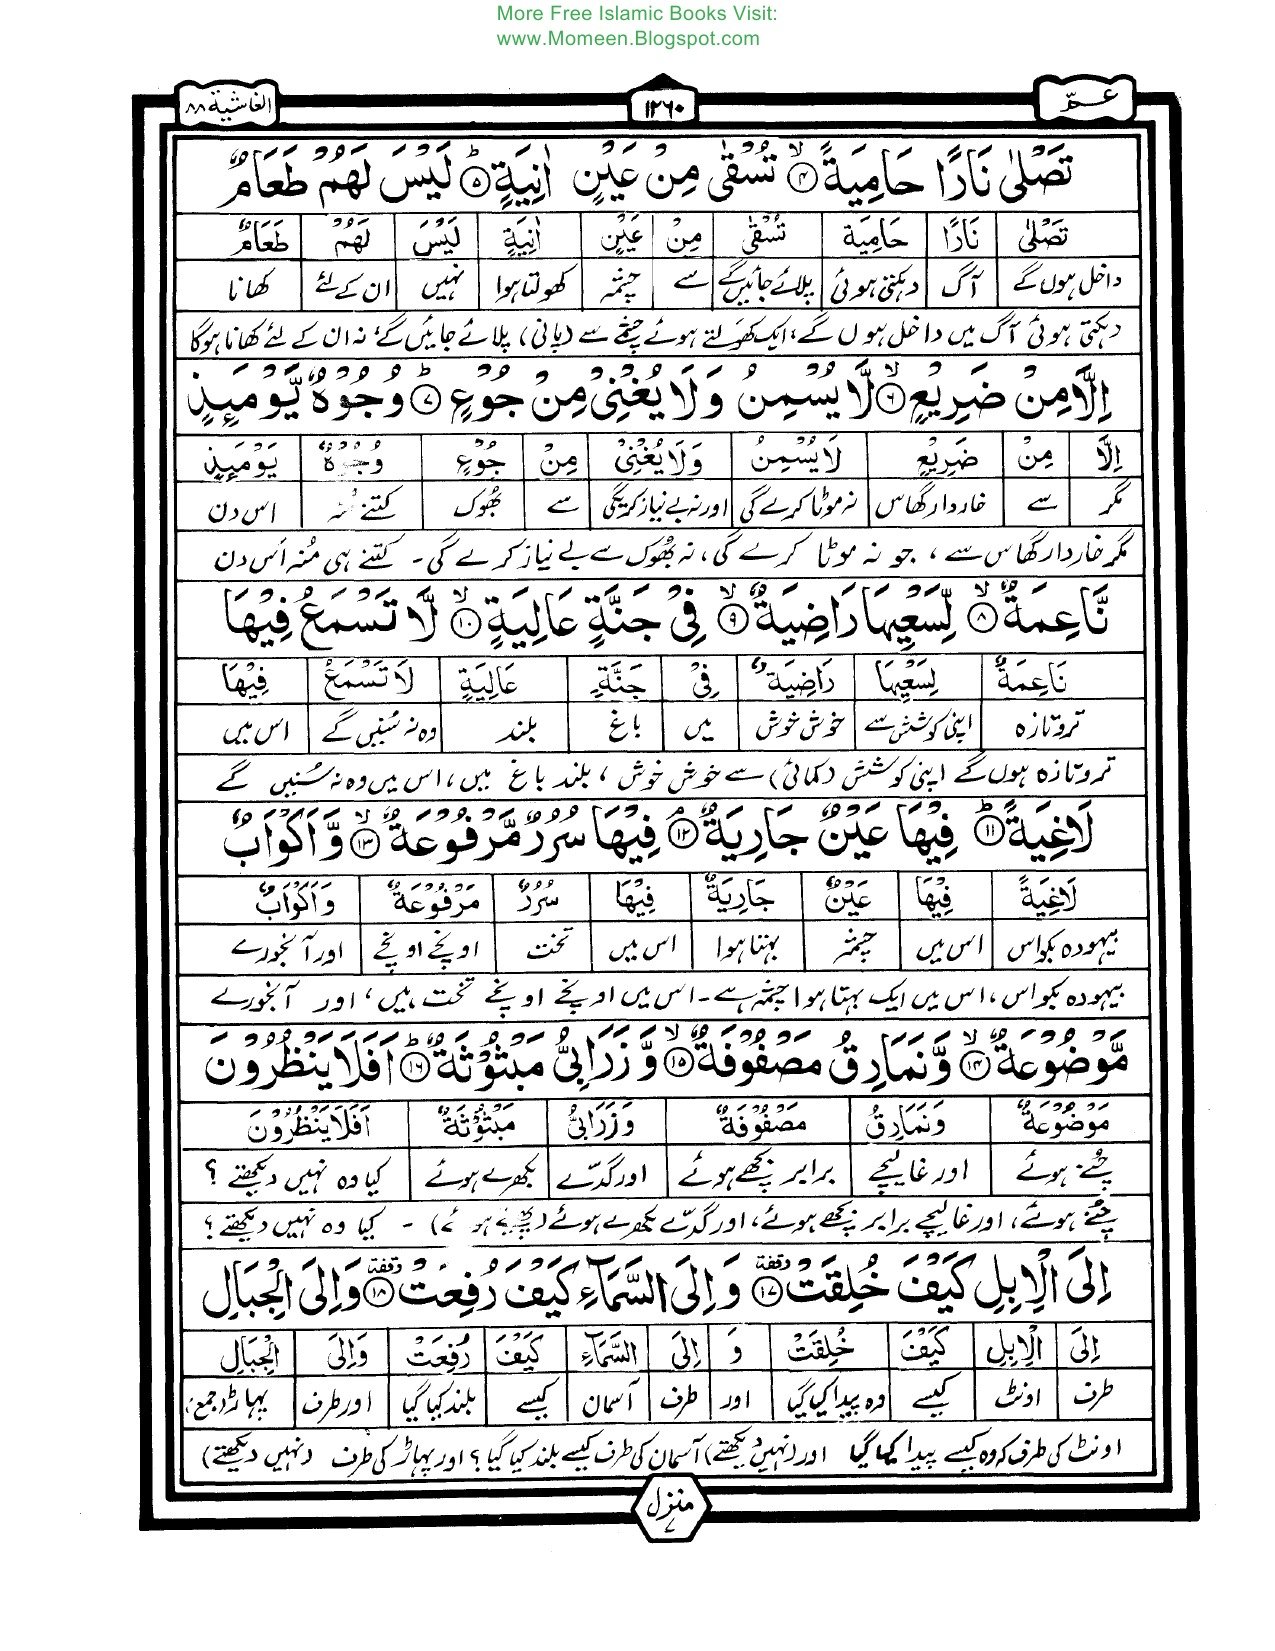 More Free Islamic Books Visit:
www.Momeen.Blogspot.com
عــمّ ١٢٦٠ الغاشية ٨٨
تَصْلٰى نَارًا حَامِيَةً ﴿٤﴾ۙ تُسْقٰى مِنْ عَيْنٍ اٰنِيَةٍ ﴿٥﴾ؕ لَيْسَ لَهُمْ طَعَامٌ
تَصْلٰى نَارًا حَامِيَة تُسْقٰى مِنْ عَيْنٍ اٰنِيَةٍ لَيْسَ لَهُمْ طَعَامٌ
داخل ہوں گے آگ دہکتی ہوئی پلائے جائیں گے سے چشمہ کھولتا ہوا نہیں ان کے لئے کھانا
دہکتی ہوئی آگ میں داخل ہوں گے، ایک کھولتے ہوئے چشمے سے (پانی) پلائے جائیں گے، نہ ان کے لئے کھانا ہوگا
اِلَّا مِنْ ضَرِيْعٍ ﴿٦﴾ۙ لَّا يُسْمِنُ وَلَا يُغْنِيْ مِنْ جُوْعٍ ﴿٧﴾ؕ وُجُوْهٌ يَّوْمَىِٕذٍ
اِلَّا مِنْ ضَرِيْعٍ لَا يُسْمِنُ وَلَا يُغْنِيْ مِنْ جُوْعٍ وُجُوْهٌ يَوْمَىِٕذٍ
مگر سے خاردار گھاس نہ موٹا کرے گی اور نہ بے نیاز کریگی سے بھُوک کتنے منہ اس دن
مگر خاردار گھاس سے، جو نہ موٹا کرے گی، نہ بھُوک سے بے نیاز کرے گی۔ کتنے ہی مُنہ اُس دن
نَّاعِمَةٌ ﴿٨﴾ۙ لِّسَعْيِهَا رَاضِيَةٌ ﴿٩﴾ۙ فِيْ جَنَّةٍ عَالِيَةٍ ﴿١٠﴾ۙ لَّا تَسْمَعُ فِيْهَا
نَاعِمَةٌ لِسَعْيِهَا رَاضِيَةٌ فِيْ جَنَّةٍ عَالِيَةٍ لَا تَسْمَعُ فِيْهَا
تروتازہ اپنی کوشش سے خوش خوش میں باغ بلند وہ نہ سُنیں گے اس میں
تروتازہ ہوں گے (اپنی کوشش (کمائی) سے خوش خوش، بلند باغ میں، اس میں وہ نہ سُنیں گے
لَاغِيَةً ﴿١١﴾ؕ فِيْهَا عَيْنٌ جَارِيَةٌ ﴿١٢﴾ۘ فِيْهَا سُرُرٌ مَّرْفُوْعَةٌ ﴿١٣﴾ۙ وَّاَكْوَابٌ
لَاغِيَةً فِيْهَا عَيْنٌ جَارِيَةٌ فِيْهَا سُرُرٌ مَرْفُوْعَةٌ وَاَكْوَابٌ
بیہودہ بکواس اس میں چشمہ بہتا ہوا اس میں تخت اونچے اونچے اور آبخورے
بیہودہ بکواس، اس میں ایک بہتا ہوا چشمہ ہے۔ اس میں اونچے اونچے تخت ہیں، اور آبخورے
مَّوْضُوْعَةٌ ﴿١٤﴾ۙ وَّنَمَارِقُ مَصْفُوْفَةٌ ﴿١٥﴾ۙ وَّزَرَابِيُّ مَبْثُوْثَةٌ ﴿١٦﴾ؕ اَفَلَا يَنْظُرُوْنَ
مَوْضُوْعَةٌ وَنَمَارِقُ مَصْفُوْفَةٌ وَزَرَابِيُّ مَبْثُوْثَةٌ اَفَلَا يَنْظُرُوْنَ
چُنے ہوئے اور غالیچے برابر بچھے ہوئے اور گدّے بکھرے ہوئے کیا وہ نہیں دیکھتے ؟
چُنے ہوئے، اور غالیچے برابر بچھے ہوئے، اور گدّے بکھرے ہوئے ۔ کیا وہ نہیں دیکھتے ؟
اِلَى الْاِبِلِ كَيْفَ خُلِقَتْ ﴿١٧﴾ وقفة وَاِلَى السَّمَآءِ كَيْفَ رُفِعَتْ ﴿١٨﴾ وقفة وَاِلَى الْجِبَالِ
اِلَى الْاِبِلِ كَيْفَ خُلِقَتْ وَ اِلَى السَّمَآءِ كَيْفَ رُفِعَتْ وَاِلَى الْجِبَالِ
طرف اونٹ کیسے وہ پیدا کیا گیا اور طرف آسمان کیسے بلند کیا گیا اور طرف پہاڑ (جمع)
اونٹ کی طرف کہ وہ کیسے پیدا کیا گیا اور (نہیں دیکھتے) آسمان کی طرف کیسے بلند کیا گیا؟ اور پہاڑ کی طرف (نہیں دیکھتے)
منزل ٧